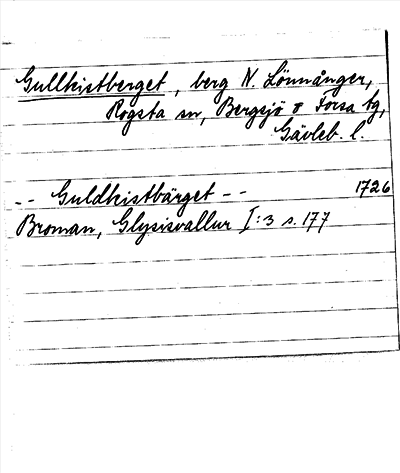 Gullkistberget, berg N. Lönnånger,
Rogsta sn, Bergsjö o Forsa tg,
Gävleb. l.
-- Guldkistbärget -- 1726
Broman, Glysisvallur I:3 s. 177